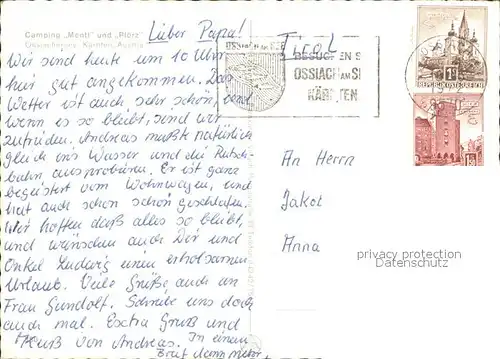 Camping „Mentl" und „Plörz"
Ossiachersee, Kärnten, Austria
Lieber Papa!
Wir sind heute um 10 Uhr
hier gut angekommen. Das
Wetter ist auch sehr schön, und
wenn es so bleibt, sind wir
zufrieden. Andreas mußte natürlich
gleich ins Wasser und die Rutsch-
bahn ausprobieren. Er ist ganz
begeistert vom Wohnwagen, und
hat auch schon schön geschlafen.
Wir hoffen daß alles so bleibt,
und wünschen auch Dir und
Onkel Ludwig einen erholsamen
Urlaub. Viele Grüße auch an
Frau Gundolf. Schreibe uns doch
auch mal. Extra Gruß und
Kuß von Andreas. In einem
Brief
Tirol
BESUCHEN S
OSSIACH AM S
KÄRNTEN
REPUBLIK ÖSTERREICH
An Herrn
Jakot
Anna
privacy protection
Datenschutz